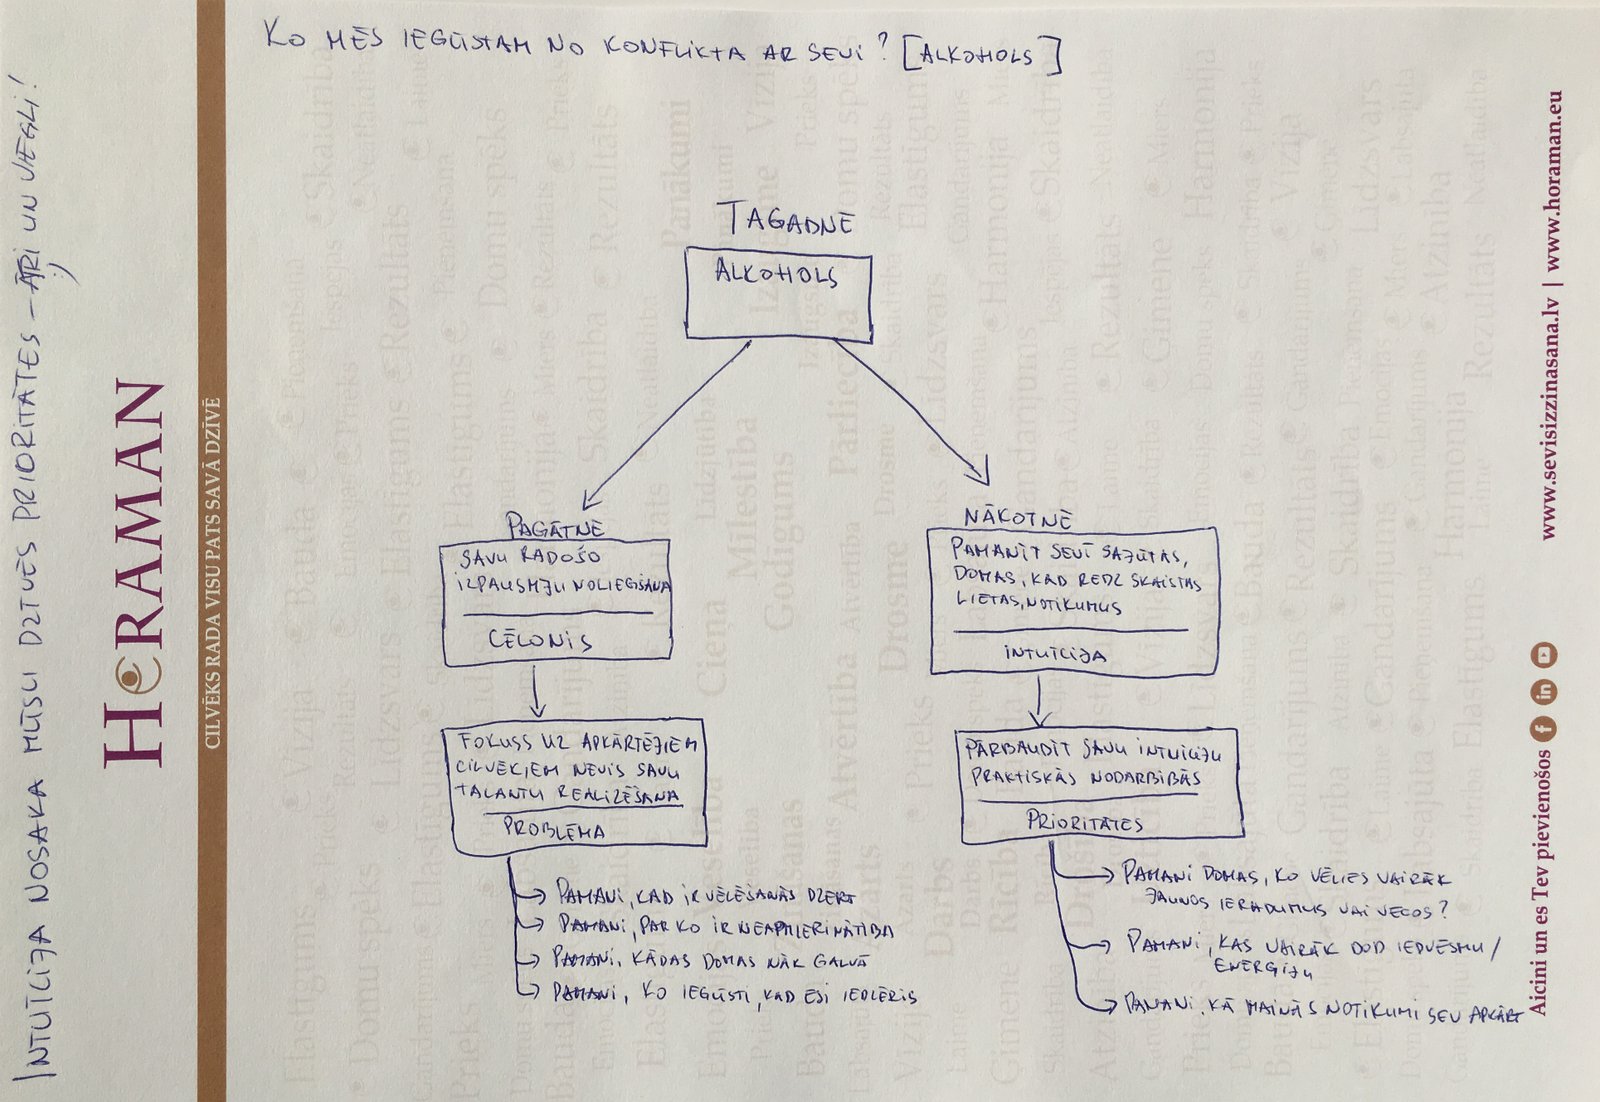 KO MĒS IEGŪSTAM NO KONFLIKTA AR SEVI? [ALKOHOLS]
INTUĪCIJA NOSAKA MŪSU DZĪVES PRIORITĀTES – ĀTRI UN VIEGLI! :)
HORAMAN
CILVĒKS RADA VISU PATS SAVĀ DZĪVĒ
TAGADNE
ALKOHOLS
PAGĀTNE
SAVU RADOŠO
IZPAUSMJU NOLIEGŠANA
CĒLONIS
FOKUSS UZ APKĀRTĒJIEM
CILVĒKIEM NEVIS SAVU
TALANTU REALIZĒŠANA
PROBLĒMA
PAMANI, KAD IR VĒLĒŠANĀS DZERT
PAMANI, PAR KO IR NEAPMIERINĀTĪBA
PAMANI, KĀDAS DOMAS NĀK GALVĀ
PAMANI, KO IEGŪSTI, KAD ESI IEDZĒRIS
NĀKOTNE
PAMANĪT SEVĪ SAJŪTAS,
DOMAS, KAD REDZ SKAISTAS
LIETAS, NOTIKUMUS
INTUĪCIJA
PĀRBAUDĪT SAVU INTUĪCIJU
PRAKTISKĀS NODARBĪBĀS
PRIORITĀTES
PAMANI DOMAS, KO VĒLIES VAIRĀK
JAUNOS IERADUMUS VAI VECOS?
PAMANI, KAS VAIRĀK DOD IEDVESMU/
ENERĢIJU
PAMANI, KĀ MAINĀS NOTIKUMI SEV APKĀRT
Aicini un es Tev pievienošos
www.sevisizzinasana.lv | www.horaman.eu